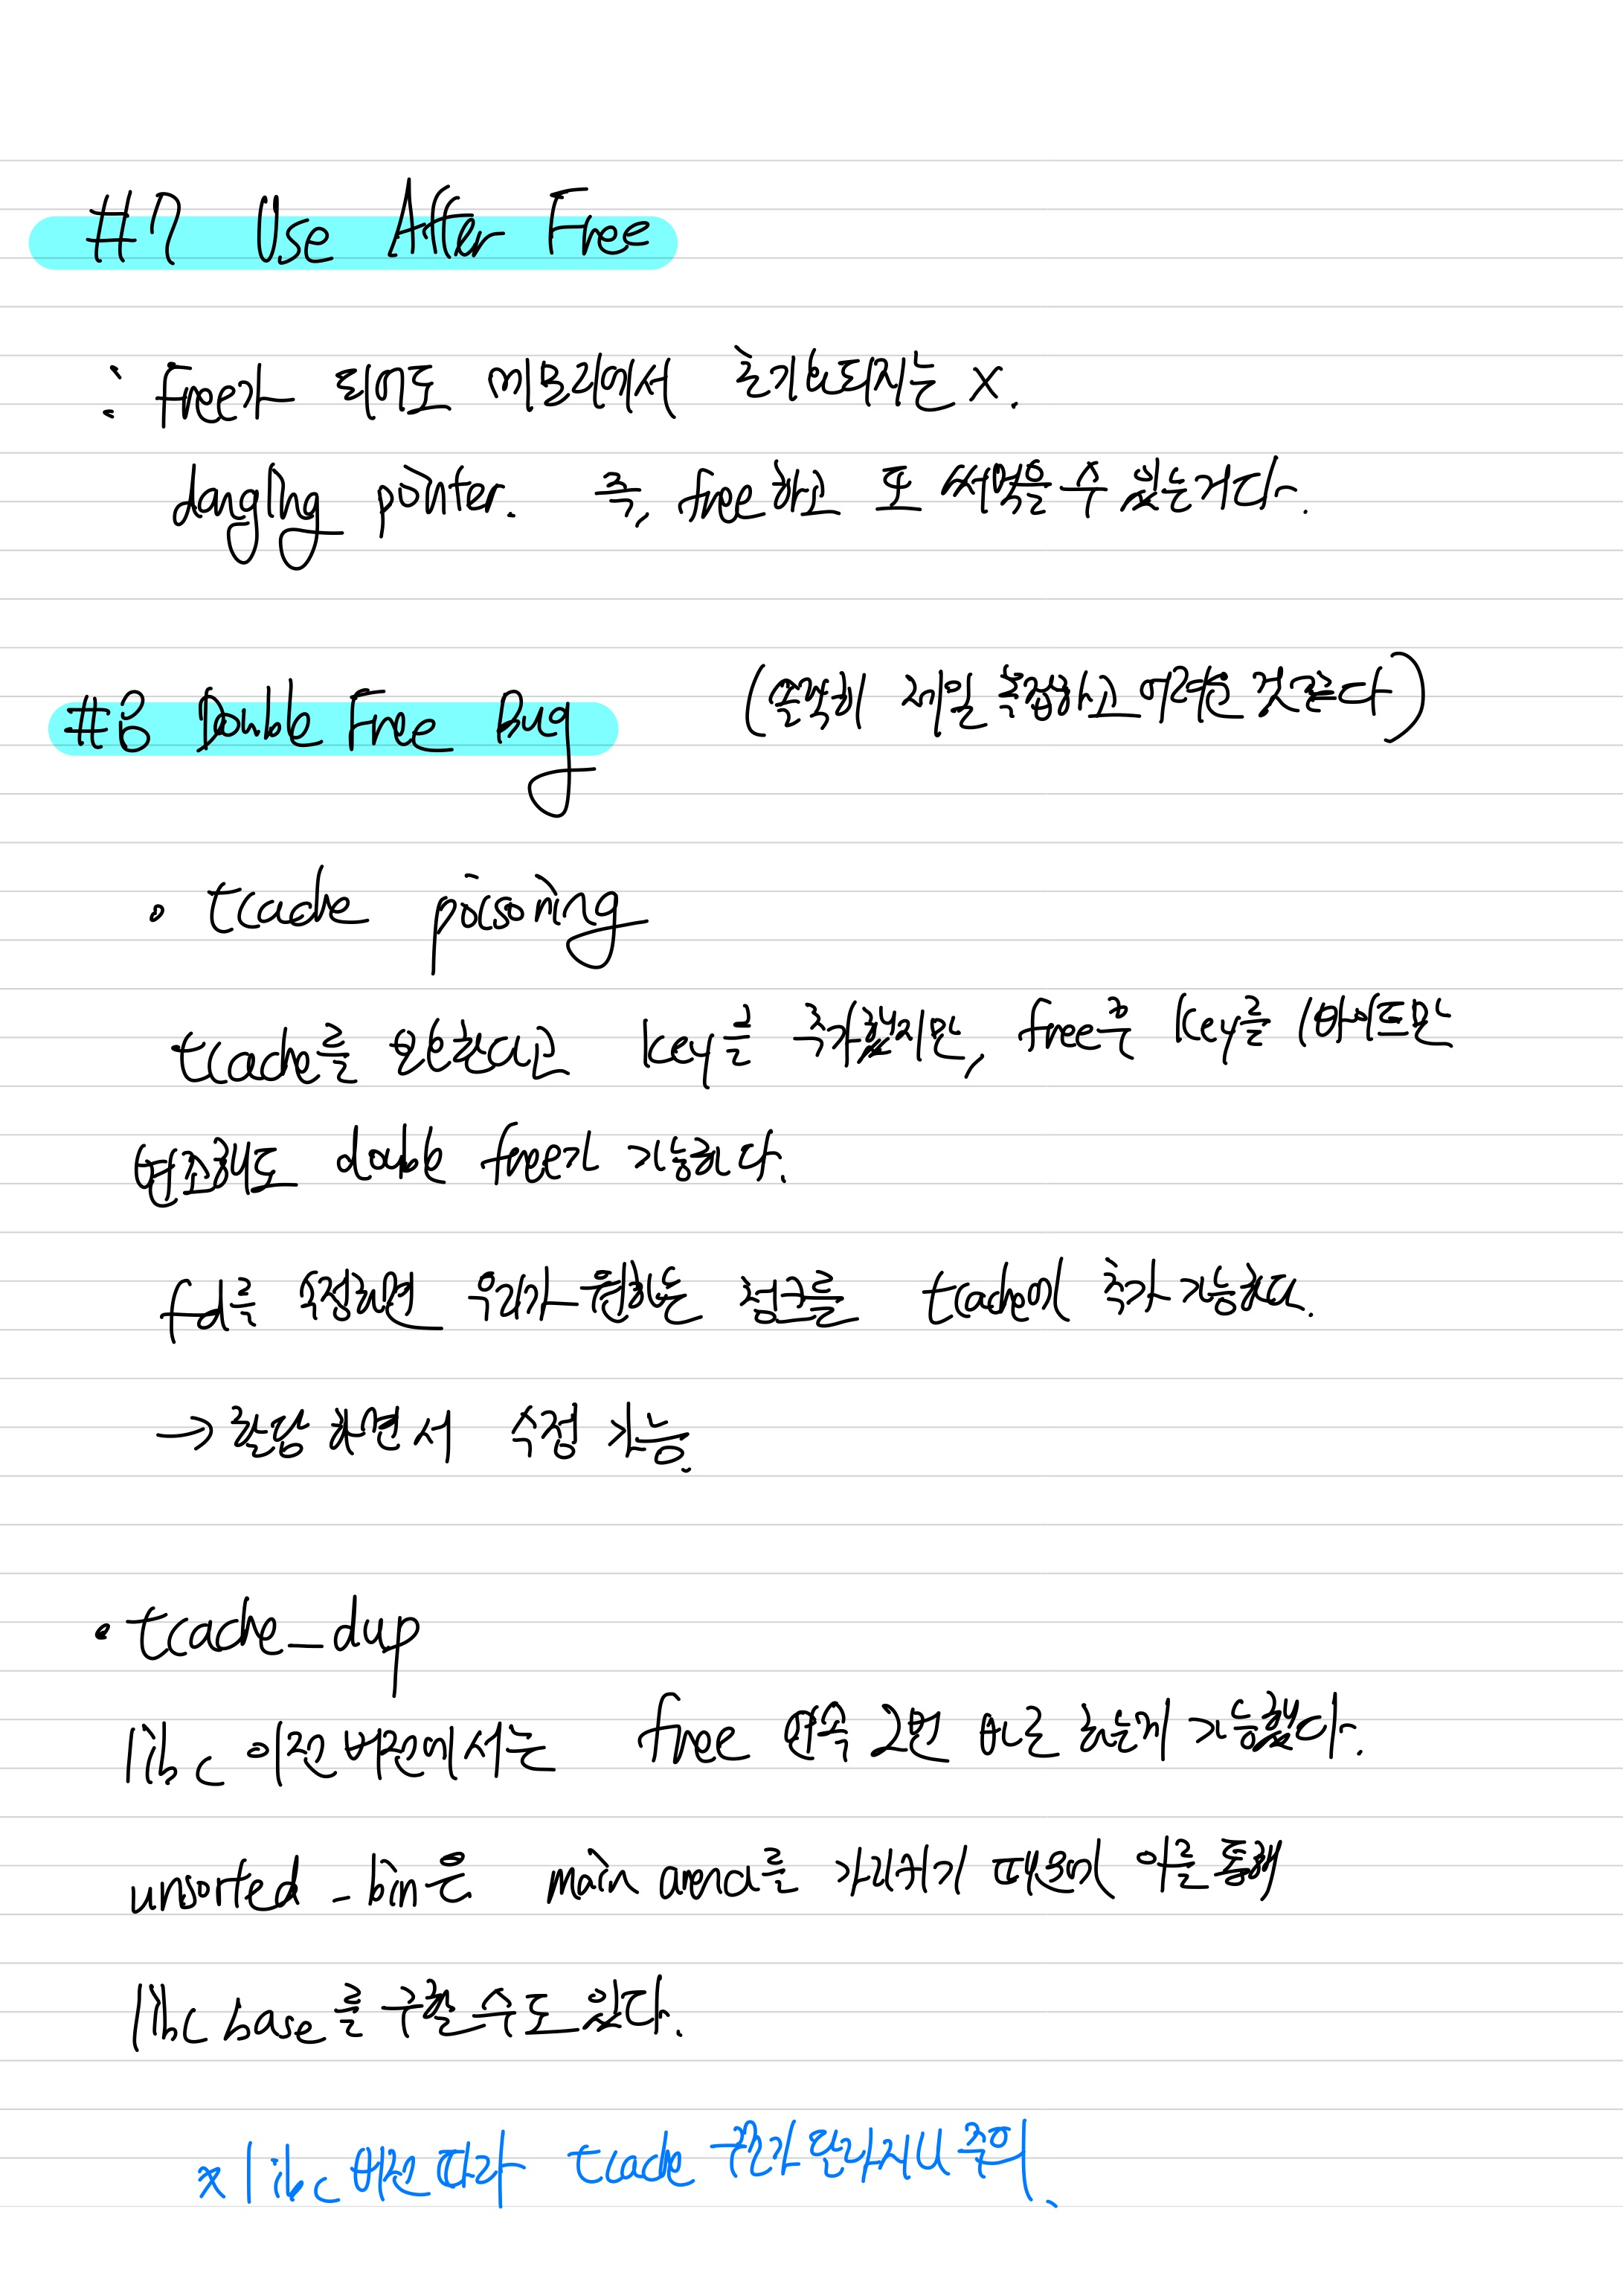 #7 Use After Free
: free가 되어도 메모리에서 초기화되지는 X.
dangling pointer. 즉, free하고 또 써먹을 수 있는거다.
#8 Double Free Bug (솔직히 제일 복잡하고 어려운 것 같다)
• tcache poisoning
tcache를 위한 key를 추가했지만, free후 key를 1바이트만
변조해도 double free가 가능하다.
fd를 수정하면 우리가 원하는 청크를 tcache에 추가 가능하다.
→ 할당하면서 수정 가능.
• tcache_dup
libc 이전버전에서는 free 연속 2번 바로 하는게 가능했다.
unsorted_bin은 main arena를 가리키기 때문에 이를 통해
libc base를 구할 수도 있다.
* libc 버전따라 tcache 구조가 달라지니 주의.